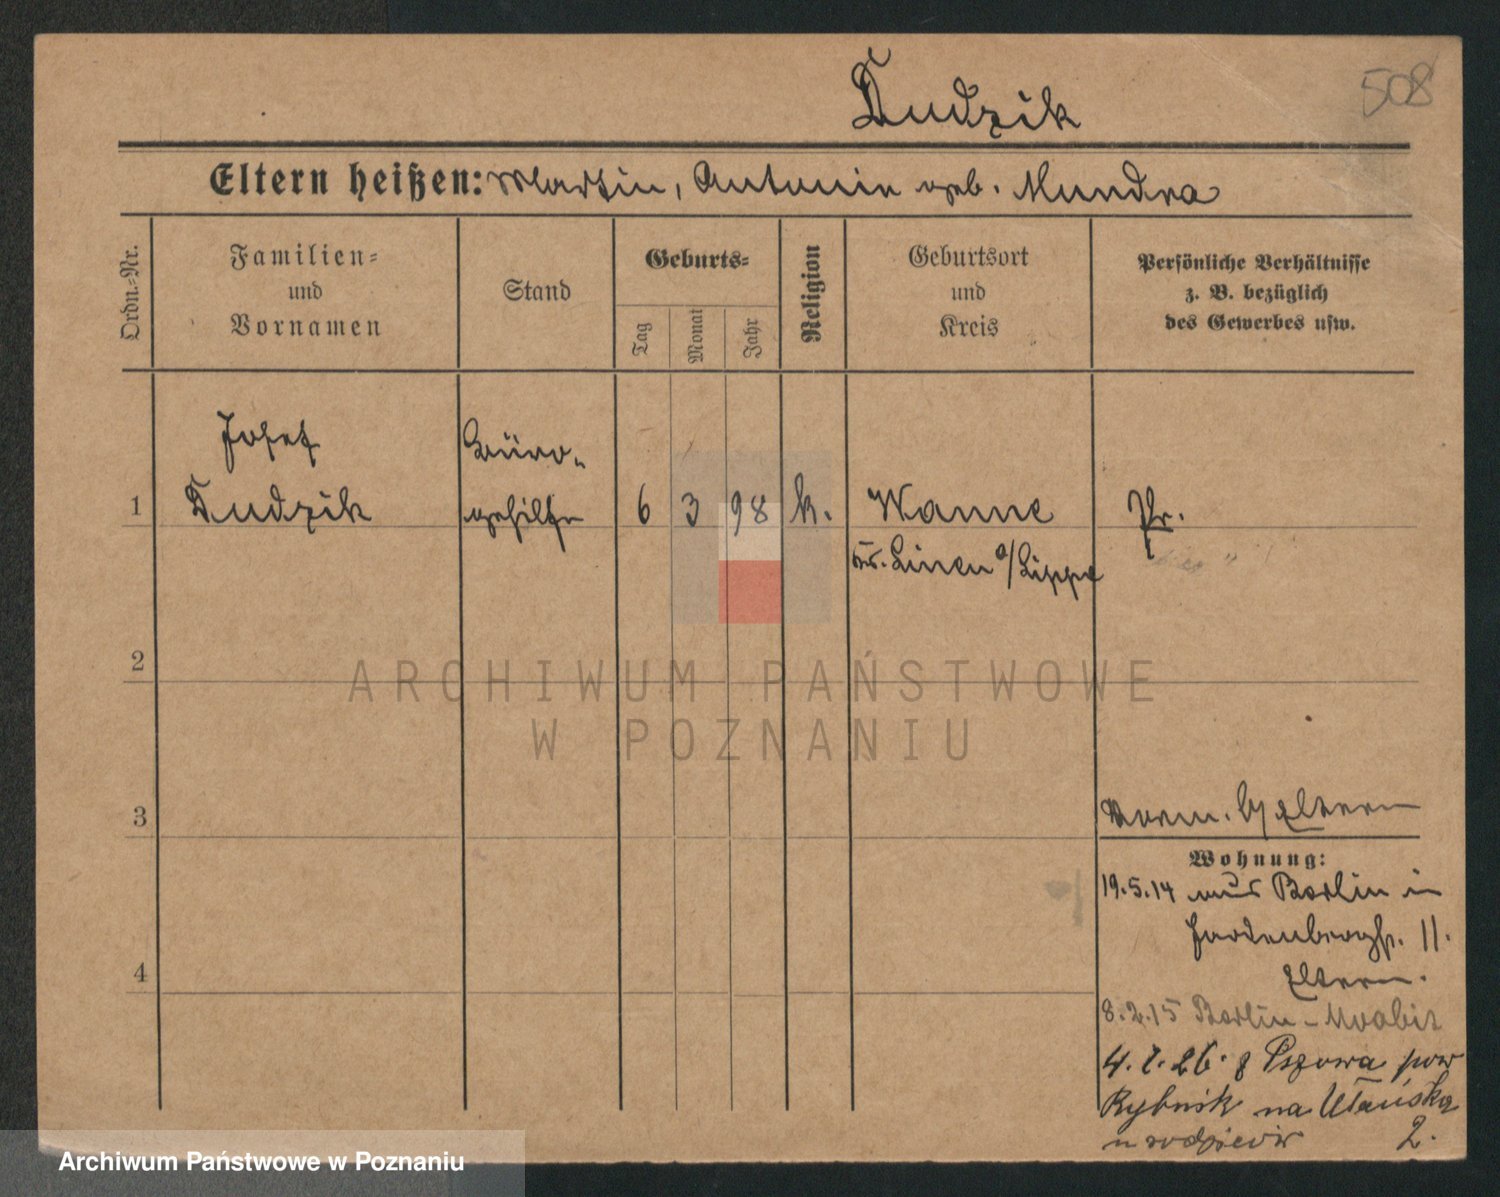 Dudzik
508
Eltern heißen: Martin, Antonie geb. Mundra
Ordn.-Nr.
Familien-
und
Vornamen
Stand
Geburts-
Tag
Monat
Jahr
Religion
Geburtsort
und
Kreis
Persönliche Verhältnisse
z. B. bezüglich
des Gewerbes usw.
Josef
Büro-
1
Dudzik
gehilfe
6
3
98
k.
Wanne
Pr.
Kr. Linen a/Lippe
2
ARCHIWUM PAŃSTWOWE
W POZNANIU
3
Eltern
Wohnung:
19.5.14 aus Berlin in
Hardenbergstr. 11.
4
Eltern.
8.2.15 Berlin-Moabit
4.1.26. z Pszowa pow
Rybnik na Ułańska
u rodziców 2.
Archiwum Państwowe w Poznaniu